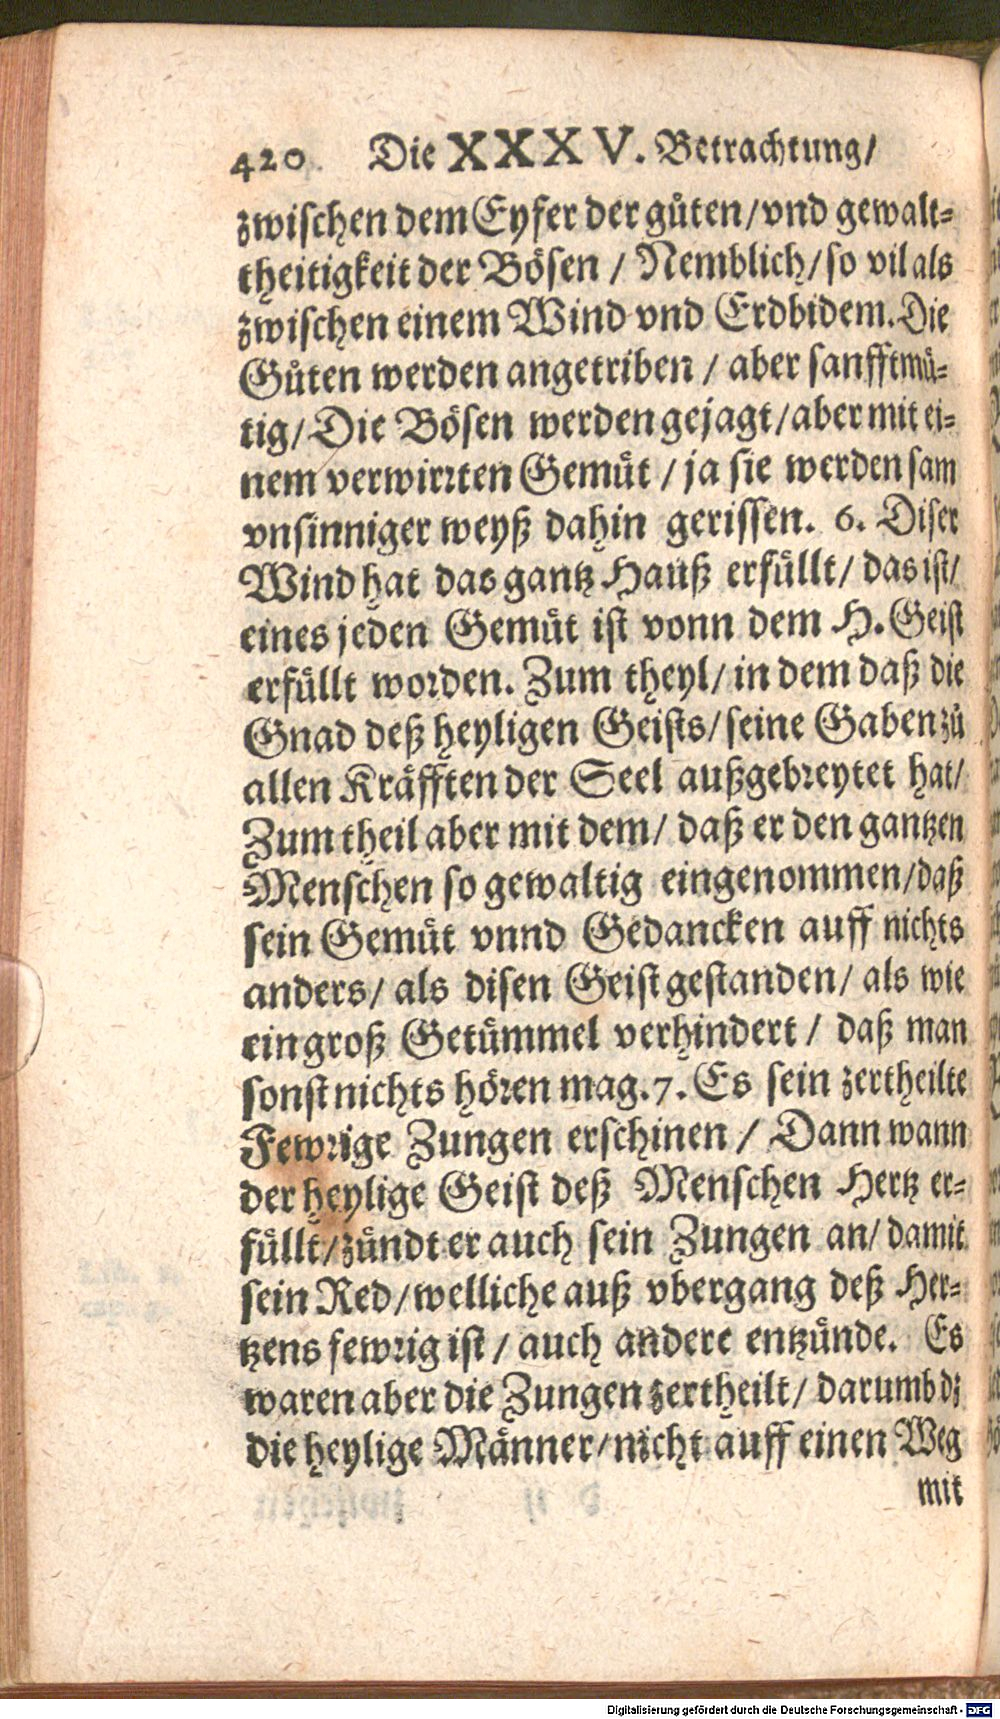 420 Die XXXV. Betrachtung/
zwischen dem Eyfer der gůten/vnd gewalt-
theitigkeit der Bösen / Nemblich/so vil als
zwischen einem Wind vnd Erdbidem. Die
Gůten werden angetriben / aber sanfftmü-
tig/ Die Bösen werden gejagt/aber mit ei-
nem verwirrten Gemüt / ja sie werden sam
vnsinniger weyß dahin gerissen. 6. Diser
Wind hat das gantz Hauß erfüllt/ das ist/
eines jeden Gemüt ist vonn dem H. Geist
erfüllt worden. Zum theyl/ in dem daß die
Gnad deß heyligen Geists/seine Gaben zů
allen Kräfften der Seel außgebreytet hat/
Zum theil aber mit dem/ daß er den gantzen
Menschen so gewaltig eingenommen/daß
sein Gemüt vnnd Gedancken auff nichts
anders/ als disen Geist gestanden/ als wie
ein groß Getümmel verhindert / daß man
sonst nichts hören mag. 7. Es sein zertheilte
Fewrige Zungen erschinen / Dann wann
der heylige Geist deß Menschen Hertz er-
füllt/zündt er auch sein Zungen an/ damit
sein Red/welliche auß vbergang deß Her-
tzens fewrig ist / auch andere entzünde. Es
waren aber die Zungen zertheilt/ darumb dz
die heylige Männer/nicht auff einen Weg
mit
Digitalisierung gefördert durch die Deutsche Forschungsgemeinschaft - DFG